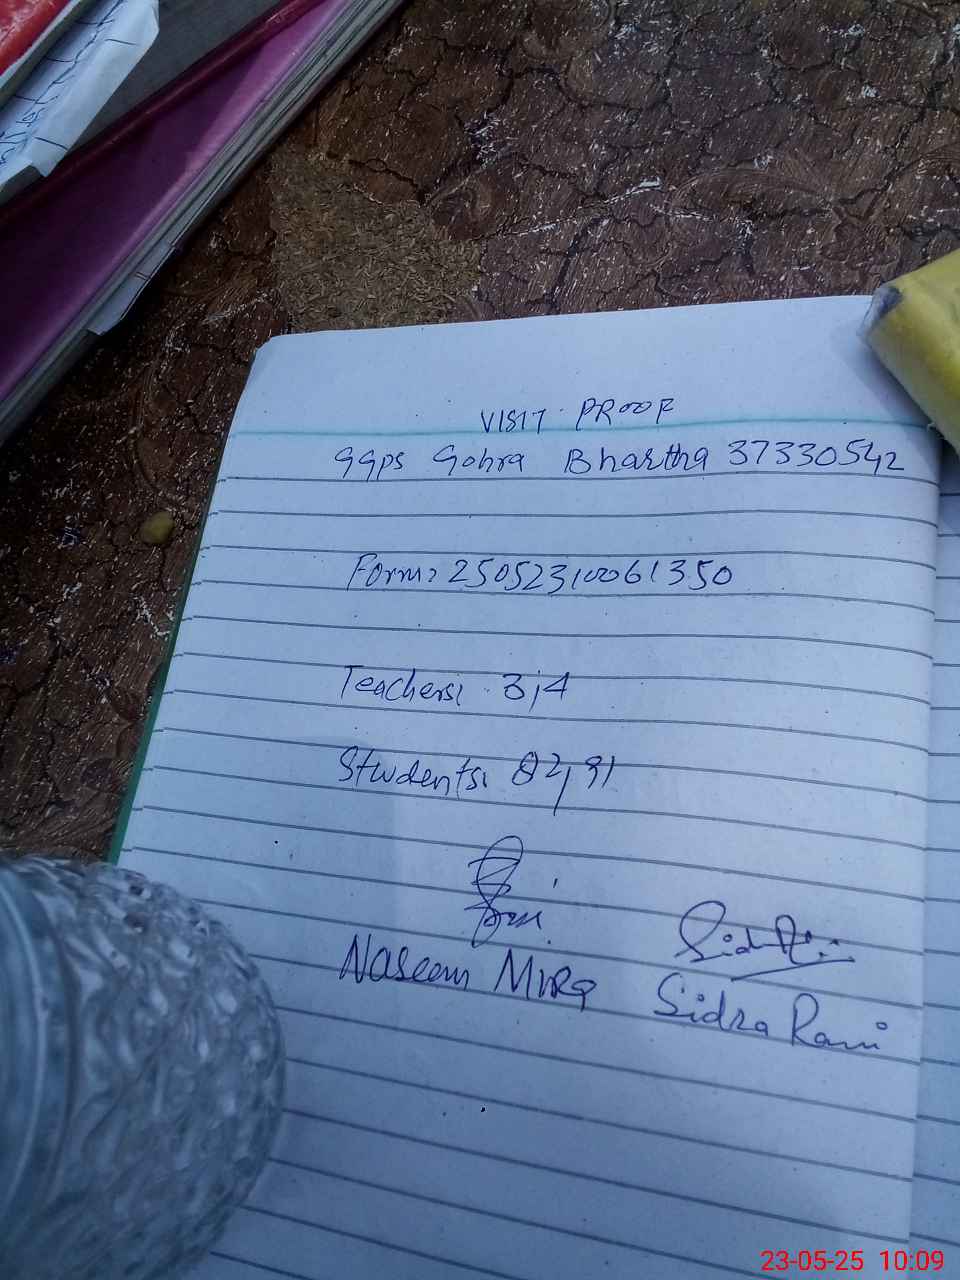 VISIT PROOF
GGps Gohra Bhartha 37330542
Form: 25052310061350
Teachers: 3,4
Students: 82,91
Naseem
Sidra Rani
23-05-25 10:09